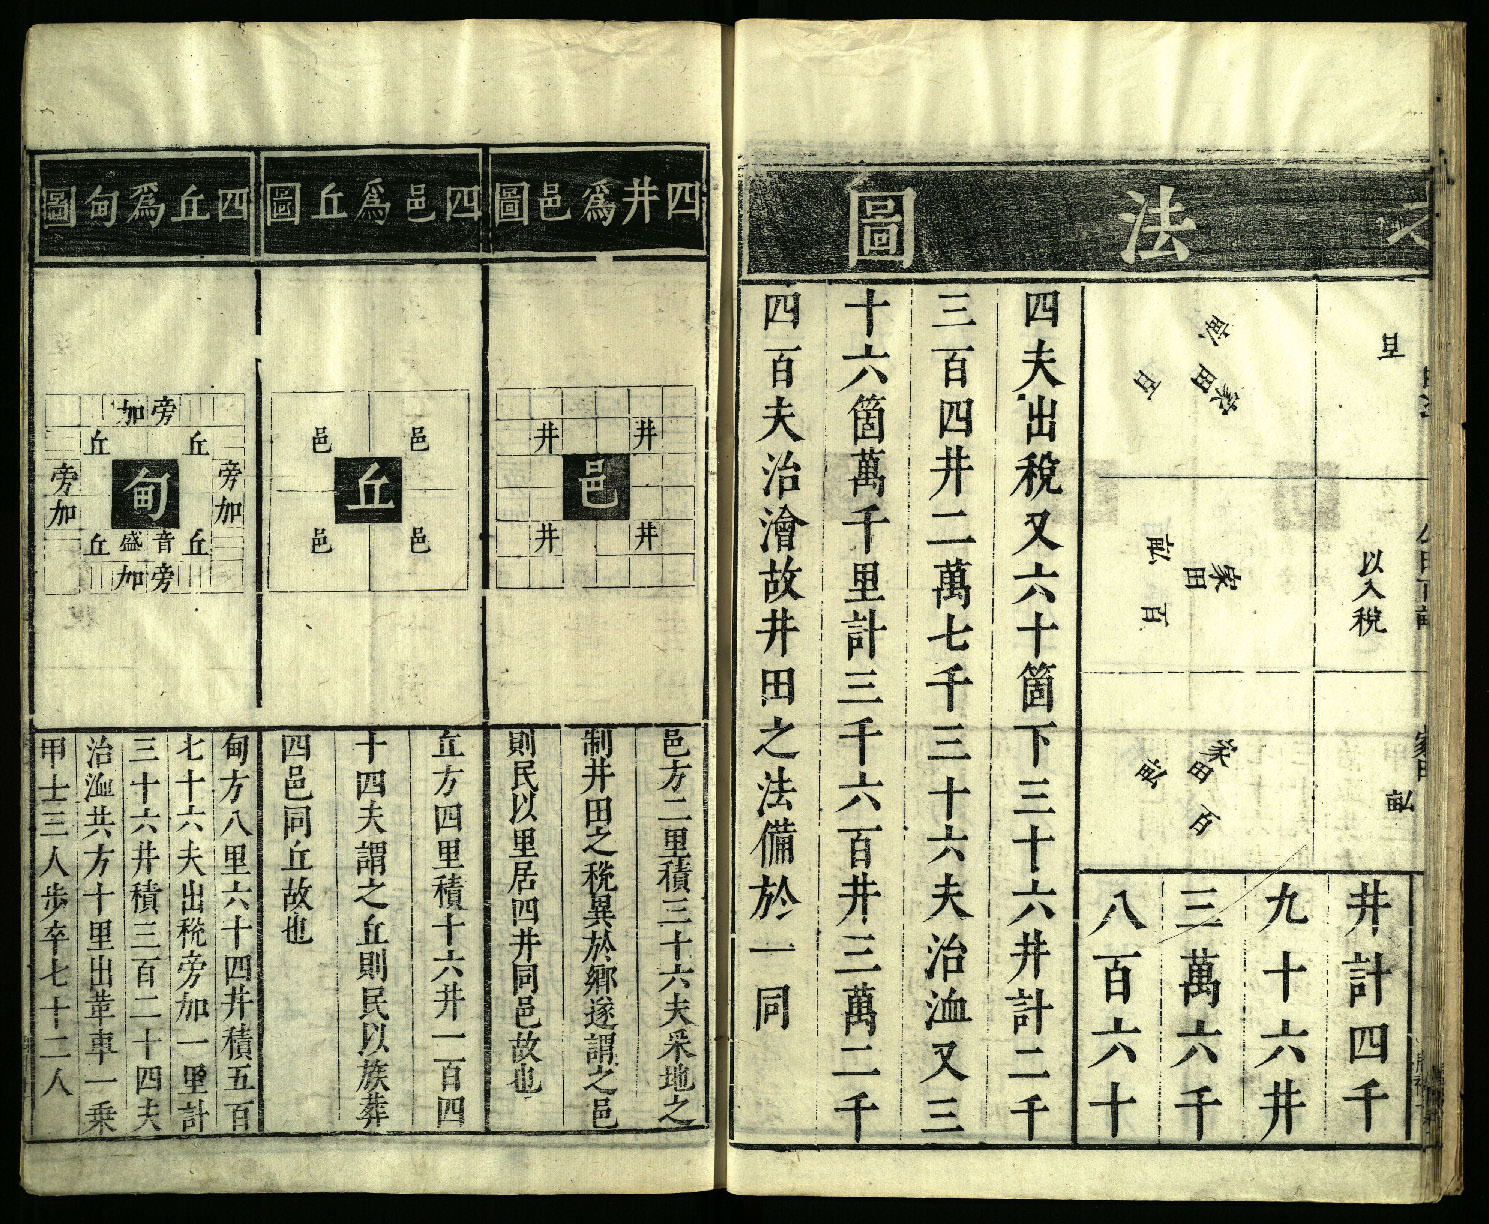 法圖
以入稅
家田百畝
家田百畝
家田百畝
井計四千
九十六井
三萬六千
八百六十
四夫出稅又六十箇下三十六井計二千
三百四井二萬七千三十六夫治洫又三
十六箇萬千里計三千六百井三萬二千
四百夫治澮故井田之法備於一同
四井爲邑圖
井
井
邑
井
井
邑方二里積三十六夫釆地之
制井田之稅異於鄉遂謂之邑
則民以里居四井同邑故也
四邑爲丘圖
邑
邑
丘
邑
邑
丘方四里積十六井一百四
十四夫謂之丘則民以族葬
四邑同丘故也
四丘爲甸圖
旁加
丘
丘
旁加
甸
旁加
丘
音盛
丘
旁加
甸方八里六十四井積五百
七十六夫出稅旁加一里計
三十六井積三百二十四夫
治洫共方十里出革車一乗
甲士三人步卒七十二人